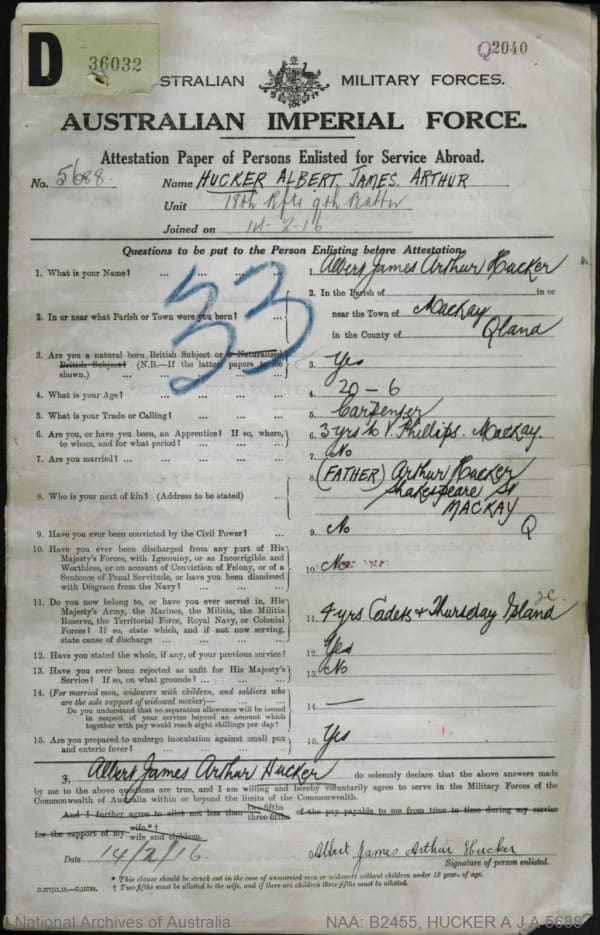 D 36032
Q2040
AUSTRALIAN MILITARY FORCES.
AUSTRALIAN IMPERIAL FORCE.
Attestation Paper of Persons Enlisted for Service Abroad.
No. 5688. Name HUCKER ALBERT JAMES ARTHUR
Unit 18th Rfts 9th Battn
Joined on 14-2-16
Questions to be put to the Person Enlisting before Attestation.
33
1. What is your Name? ... ... ... ... 1. Albert James Arthur Hucker
2. In or near what Parish or Town were you born? ... ... 2. In the Parish of in or
near the Town of Mackay
in the County of Qland
3. Are you a natural born British Subject or a Naturalized
British Subject? (N.B.—If the latter, papers to be
shown.) ... ... ... ... 3. Yes
4. What is your Age? ... ... ... ... 4. 20 - 6
5. What is your Trade or Calling? ... ... ... 5. Carpenter
6. Are you, or have you been, an Apprentice? If so, where,
to whom, and for what period? ... ... ... 6. 3 yrs to V. Phillips. Mackay.
7. Are you married? ... ... ... ... 7. No
8. Who is your next of kin? (Address to be stated) ... 8. (FATHER) Arthur Hucker
Shakespeare St
MACKAY
Q
9. Have you ever been convicted by the Civil Power? ... 9. No
10. Have you ever been discharged from any part of His
Majesty's Forces, with Ignominy, or as Incorrigible and
Worthless, or on account of Conviction of Felony, or of a
Sentence of Penal Servitude, or have you been dismissed
with Disgrace from the Navy? ... ... 10. No
11. Do you now belong to, or have you ever served in, His
Majesty's Army, the Marines, the Militia, the Militia
Reserve, the Territorial Force, Royal Navy, or Colonial
Forces? If so, state which, and if not now serving,
state cause of discharge ... ... ... 11. 4 yrs Cadets & Thursday Island
12. Have you stated the whole, if any, of your previous service? 12. Yes
13. Have you ever been rejected as unfit for His Majesty's
Service? If so, on what grounds? ... ... 13. No
14. (For married men, widowers with children, and soldiers who
are the sole support of widowed mother)— ... ...
Do you understand that no separation allowance will be issued
in respect of your service beyond an amount which
together with pay would reach eight shillings per day? 14. —
15. Are you prepared to undergo inoculation against small pox
and enteric fever? ... ... ... ... 15. Yes
I, Albert James Arthur Hucker do solemnly declare that the above answers made
by me to the above questions are true, and I am willing and hereby voluntarily agree to serve in the Military Forces of the
Commonwealth of Australia within or beyond the limits of the Commonwealth.
And I further agree to allot not less than two-fifths three-fifths of the pay payable to me from time to time during my service
for the support of my wife*† wife and children.
Date 14/2/16. Albert James Arthur Hucker
Signature of person enlisted.
* This clause should be struck out in the case of unmarried men or widowers without children under 18 years of age.
† Two-fifths must be allotted to the wife, and if there are children three-fifths must be allotted.
National Archives of Australia
NAA: B2455, HUCKER A J A 5688